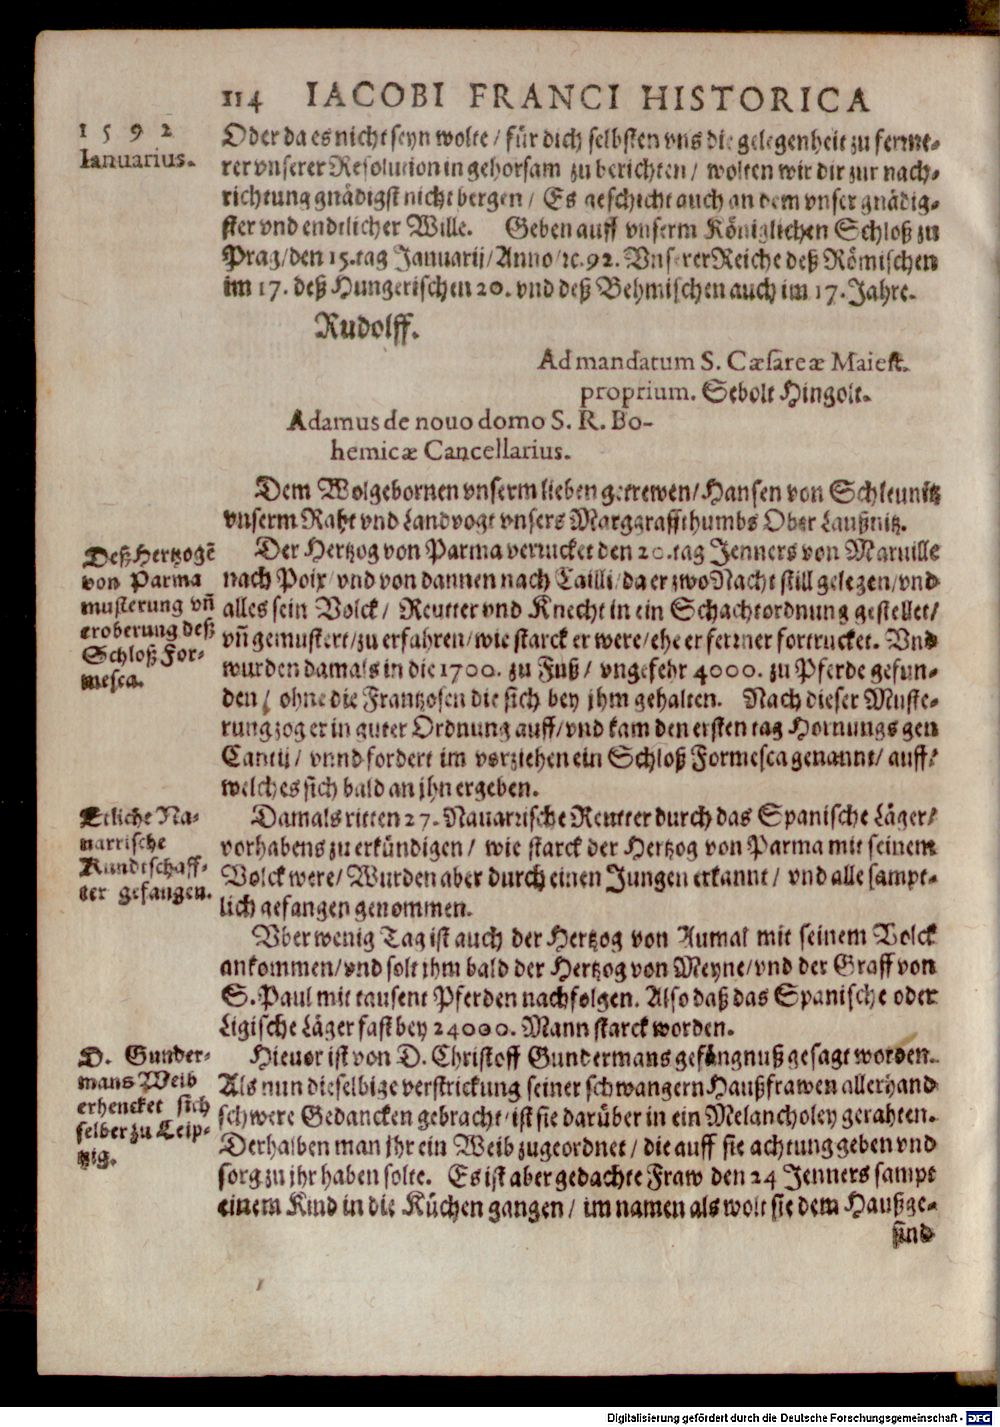 114 IACOBI FRANCI HISTORICA
1592
Ianuarius.
Oder da es nicht seyn wolte / für dich selbsten vns die gelegenheit zu ferne-
rer vnserer Resolution in gehorsam zu berichten / wolten wir dir zur nach-
richtung gnädigst nicht bergen / Es geschicht auch an dem vnser gnädig-
ster vnd endtlicher Wille. Geben auff vnserm Königlichen Schloß zu
Prag/den 15.tag Januarij/Anno/ꝛc.92. Vnserer Reiche deß Römischen
im 17. deß Hungerischen 20. vnd deß Behmischen auch im 17. Jahre.
Rudolff.
Ad mandatum S. Cæsareæ Maiest.
proprium. Sebolt Hingolt.
Adamus de nouo domo S. R. Bo-
hemicæ Cancellarius.
Dem Wolgebornen vnserm lieben getrewen/Hansen von Schleunitz
vnserm Raht vnd Landvogt vnsers Marggraffthumbs Ober Laußnitz.
Deß Hertzogē
von Parma
musterung vñ
eroberung deß
Schloß For-
mesca.
Der Hertzog von Parma verrucket den 20.tag Jenners von Maruille
nach Poix/vnd von dannen nach Tailli/da er zwo Nacht still gelegen/vnd
alles sein Volck/ Reutter vnd Knecht in ein Schachtordnung gestellet/
vñ gemustert/zu erfahren/wie starck er were/ehe er ferrner fortrucket. Vnd
wurden damals in die 1700. zu Fuß/ vngefehr 4000. zu Pferde gefun-
den / ohne die Frantzosen die sich bey jhm gehalten. Nach dieser Muste-
rung zog er in guter Ordnung auff/vnd kam den ersten tag Hornungs gen
Cantij/ vnnd fordert im vorziehen ein Schloß Formesca genannt/ auff/
welches sich bald an jhn ergeben.
Etliche Na-
uarrische
Kundtschaff-
ter gefangen.
Damals ritten 27. Nauarrische Reutter durch das Spanische Läger/
vorhabens zu erkündigen / wie starck der Hertzog von Parma mit seinem
Volck were/ Wurden aber durch einen Jungen erkannt / vnd alle sampt-
lich gefangen genommen.
Vber wenig Tag ist auch der Hertzog von Aumal mit seinem Volck
ankommen/vnd solt jhm bald der Hertzog von Meyne/vnd der Graff von
S. Paul mit tausent Pferden nachfolgen. Also daß das Spanische oder
Ligische Läger fast bey 24000. Mann starck worden.
D. Gunder-
mans Weib
erhencket sich
selber zu Leip-
tzig.
Hieuor ist von D. Christoff Gundermans gefängnuß gesagt worden.
Als nun dieselbige verstrickung seiner schwangern Haußfrawen allerhand
schwere Gedancken gebracht/ist sie darüber in ein Melancholey gerahten.
Derhalben man jhr ein Weib zugeordnet / die auff sie achtung geben vnd
sorg zu jhr haben solte. Es ist aber gedachte Fraw den 24 Jenners sampt
einem Kind in die Küchen gangen / im namen als wolt sie dem Haußge-
sind
Digitalisierung gefördert durch die Deutsche Forschungsgemeinschaft - DFG